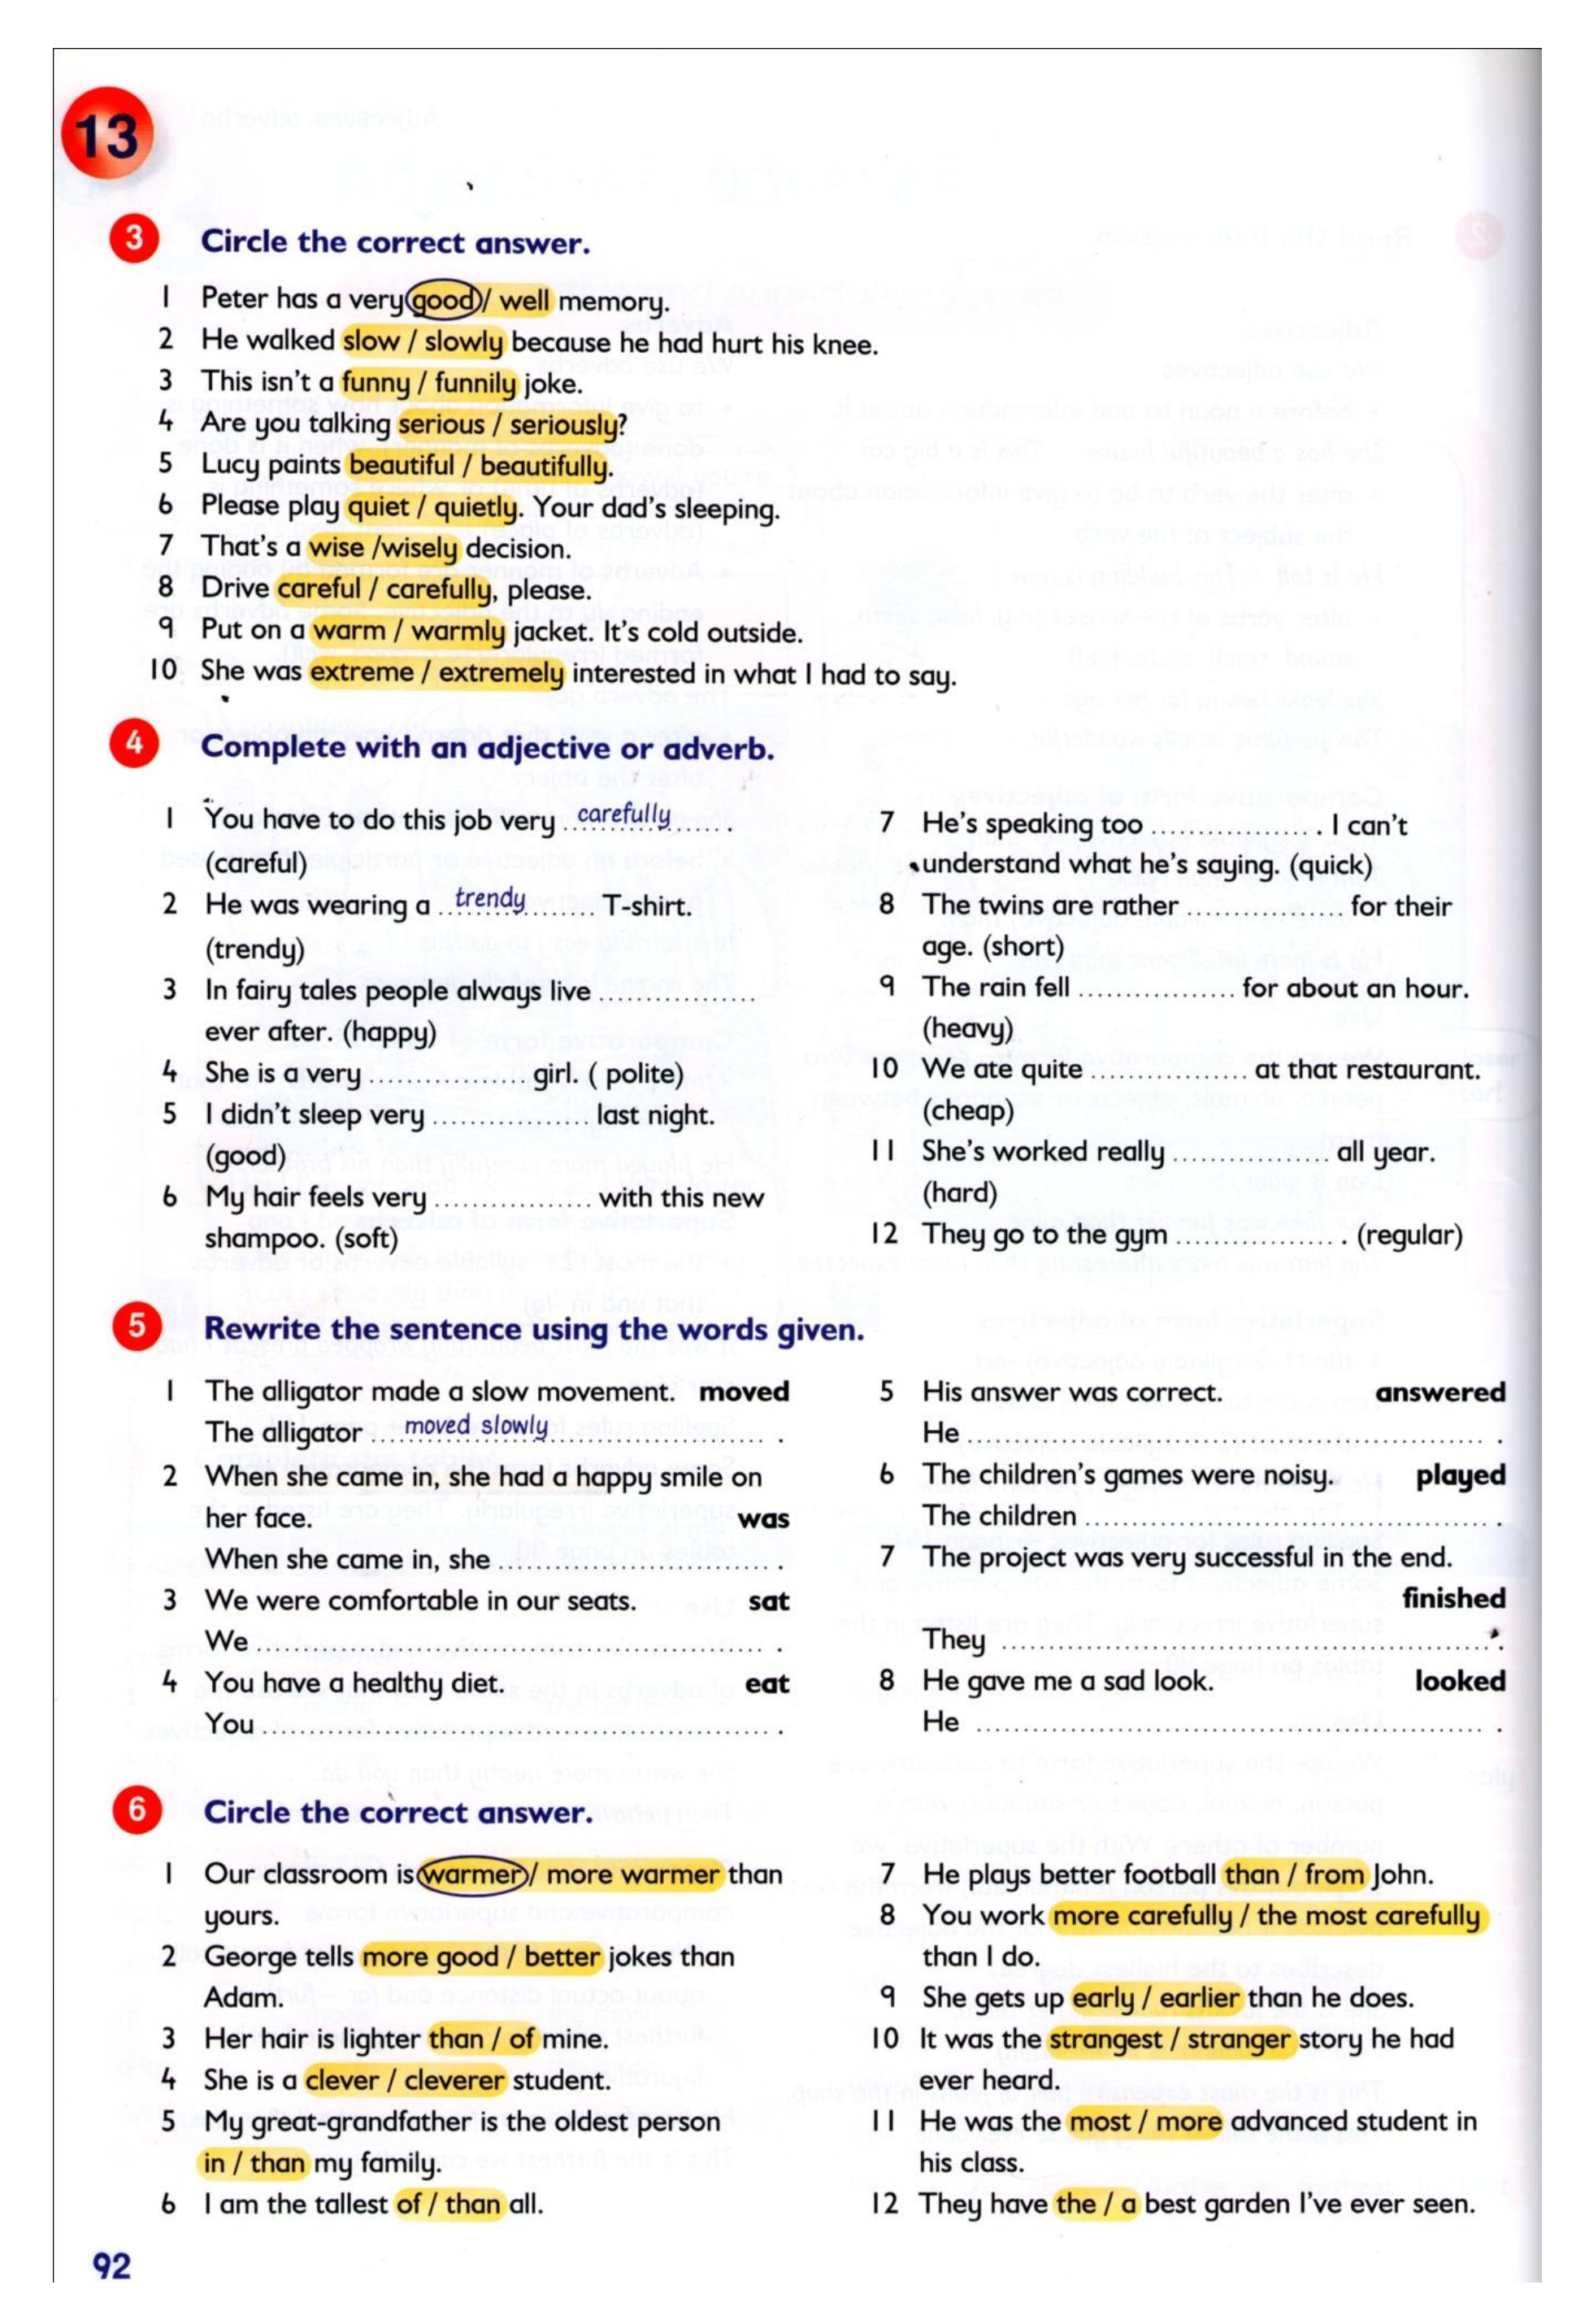 13
3 Circle the correct answer.
1 Peter has a very good / well memory.
2 He walked slow / slowly because he had hurt his knee.
3 This isn't a funny / funnily joke.
4 Are you talking serious / seriously?
5 Lucy paints beautiful / beautifully.
6 Please play quiet / quietly. Your dad's sleeping.
7 That's a wise /wisely decision.
8 Drive careful / carefully, please.
9 Put on a warm / warmly jacket. It's cold outside.
10 She was extreme / extremely interested in what I had to say.
4 Complete with an adjective or adverb.
1 You have to do this job very carefully .
(careful)
2 He was wearing a trendy T-shirt.
(trendy)
3 In fairy tales people always live ................
ever after. (happy)
4 She is a very ................ girl. ( polite)
5 I didn't sleep very ................ last night.
(good)
6 My hair feels very ................ with this new
shampoo. (soft)
7 He's speaking too ................ . I can't
understand what he's saying. (quick)
8 The twins are rather ................ for their
age. (short)
9 The rain fell ................ for about an hour.
(heavy)
10 We ate quite ................ at that restaurant.
(cheap)
11 She's worked really ................ all year.
(hard)
12 They go to the gym ................ . (regular)
5 Rewrite the sentence using the words given.
1 The alligator made a slow movement. moved
The alligator moved slowly .
2 When she came in, she had a happy smile on
her face. was
When she came in, she ................ .
3 We were comfortable in our seats. sat
We ................ .
4 You have a healthy diet. eat
You ................ .
5 His answer was correct. answered
He ................ .
6 The children's games were noisy. played
The children ................ .
7 The project was very successful in the end.
finished
They ................ .
8 He gave me a sad look. looked
He ................ .
6 Circle the correct answer.
1 Our classroom is warmer / more warmer than
yours.
2 George tells more good / better jokes than
Adam.
3 Her hair is lighter than / of mine.
4 She is a clever / cleverer student.
5 My great-grandfather is the oldest person
in / than my family.
6 I am the tallest of / than all.
7 He plays better football than / from John.
8 You work more carefully / the most carefully
than I do.
9 She gets up early / earlier than he does.
10 It was the strangest / stranger story he had
ever heard.
11 He was the most / more advanced student in
his class.
12 They have the / a best garden I've ever seen.
92